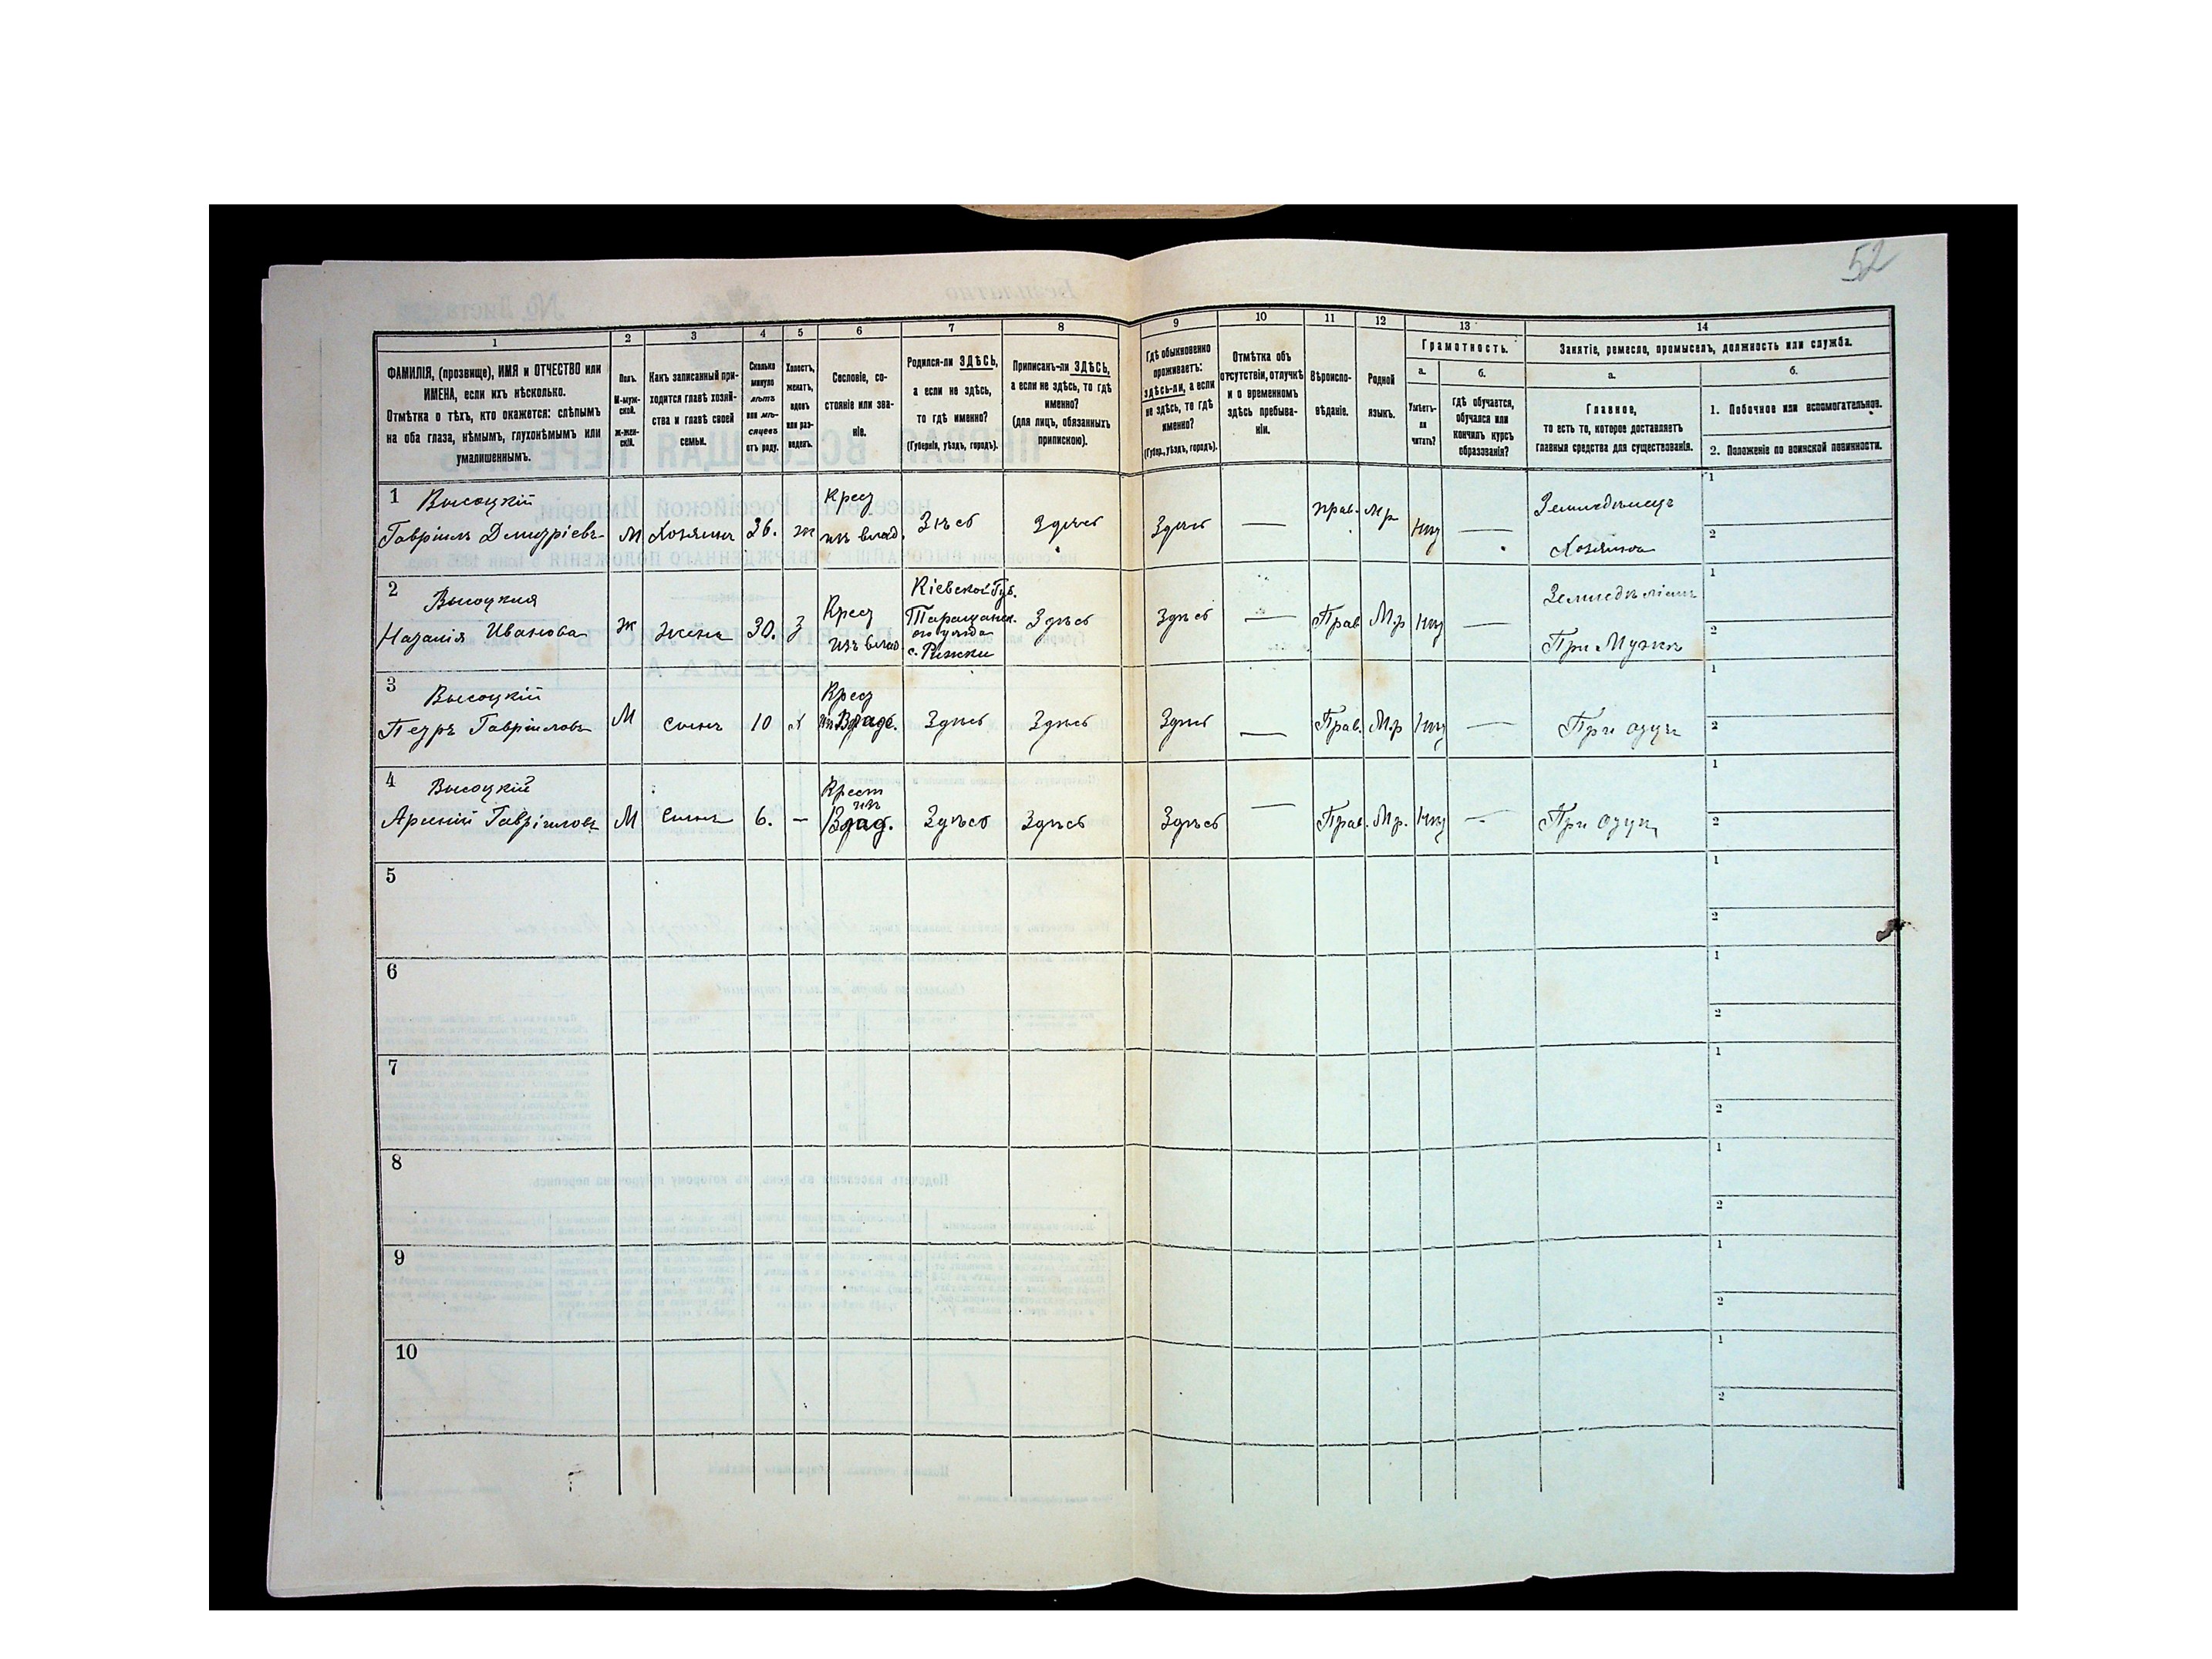 52
1
2
3
4
5
6
7
8
9
10
11
12
13
14
ФАМИЛІЯ, (прозвище), ИМЯ и ОТЧЕСТВО или
ИМЕНА, если ихъ нѣсколько.
Отмѣтка о тѣхъ, кто окажется: слѣпымъ
на оба глаза, нѣмымъ, глухонѣмымъ или
умалишеннымъ.
Полъ.
М-муж-
ской.
Ж-жен-
скій.
Какъ записанный при-
ходится главѣ хозяй-
ства и главѣ своей
семьи.
Сколько
минуло
лѣтъ
или мѣ-
сяцевъ
отъ роду.
Холостъ,
женатъ,
вдовъ
или раз-
веденъ.
Сословіе, со-
стояніе или зва-
ніе.
Родился-ли ЗДѢСЬ,
а если не здѣсь,
то гдѣ именно?
(Губернія, уѣздъ, городъ).
Приписанъ-ли ЗДѢСЬ,
а если не здѣсь, то гдѣ
именно?
(для лицъ, обязанныхъ
припискою).
Гдѣ обыкновенно
проживаетъ:
здѣсь-ли, а если
не здѣсь, то гдѣ
именно?
(Губер., уѣздъ, городъ).
Отмѣтка объ
отсутствіи, отлучкѣ
и о временномъ
здѣсь пребыва-
ніи.
Вѣроиспо-
вѣданіе.
Родной
языкъ.
Грамотность.
а.
Умѣетъ-
ли
читать?
б.
гдѣ обучается,
обучался или
кончилъ курсъ
образованія?
Занятіе, ремесло, промыселъ, должность или служба.
а.
Главное,
то есть то, которое доставляетъ
главныя средства для существованія.
б.
1. Побочное или вспомогательное.
2. Положеніе по воинской повинности.
1 Высоцкій
Гавріилъ Дмитріевъ
М
Хозяинъ
36.
ж
Крест
изъ влад.
Здѣсь
Здѣсь
Здѣсь
—
прав.
Мр
нѣт
—
Земледѣлецъ
Хозяинъ
1
2
2 Высоцкая
Наталія Иванова
Ж
Жена
30.
З
Крест
изъ влад.
Кіевской Губ.
Таращанск.
ого уѣзда
с.
Здѣсь
Здѣсь
—
Прав
М.р
нѣт
—
При Мужѣ
1
2
3 Высоцкій
Петръ Гавріиловъ
М
сынъ
10
х
Крест
изъ Влад.
Здѣсь
Здѣсь
Здѣсь
—
Прав.
М.р
нѣт
—
При отцѣ
1
2
4 Высоцкій
Арсеній Гавріиловъ
М
Сынъ
6.
—
Крест
изъ
Влад.
Здѣсь
Здѣсь
Здѣсь
—
Прав.
Мр.
нѣт
—
При отцѣ
1
2
5
1
2
6
1
2
7
1
2
8
1
2
9
1
2
10
1
2